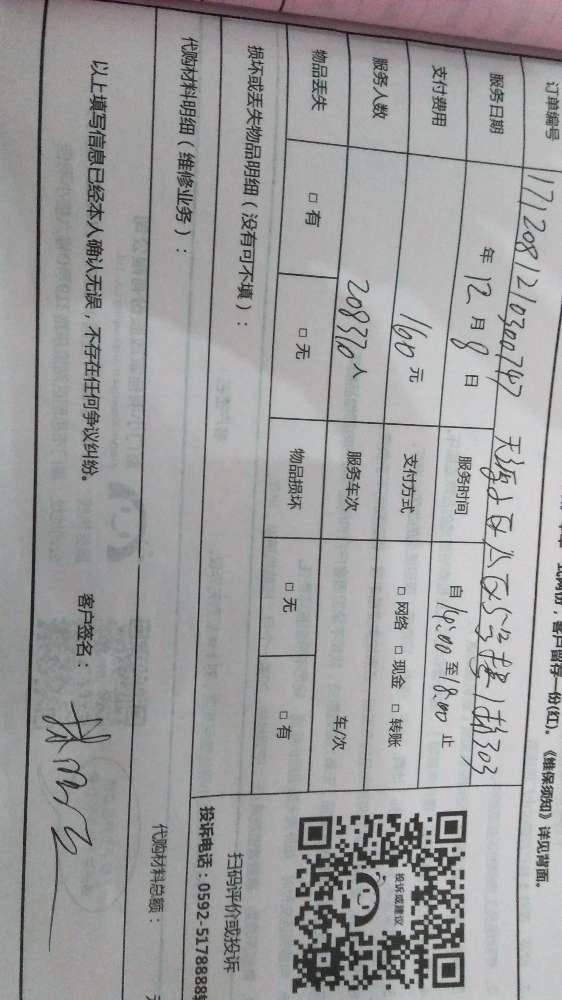 一式两份，客户留存一份(红)。《维保须知》详见背面。
订单编号 171208121030074
服务日期 年 12 月 8 日 服务时间 自 14:00 至 18:00 止
支付费用 160 元 支付方式 □ 网络 □ 现金 □ 转账
服务人数 208370 人 服务车次 车/次
物品丢失 □ 有 □ 无 物品损坏 □ 无 □ 有
投诉或建议
扫码评价或投诉
投诉电话：0592-5178888转
损坏或丢失物品明细（没有可不填）：
代购材料明细（维修业务）：
代购材料总额：
以上填写信息已经本人确认无误，不存在任何争议纠纷。 客户签名：